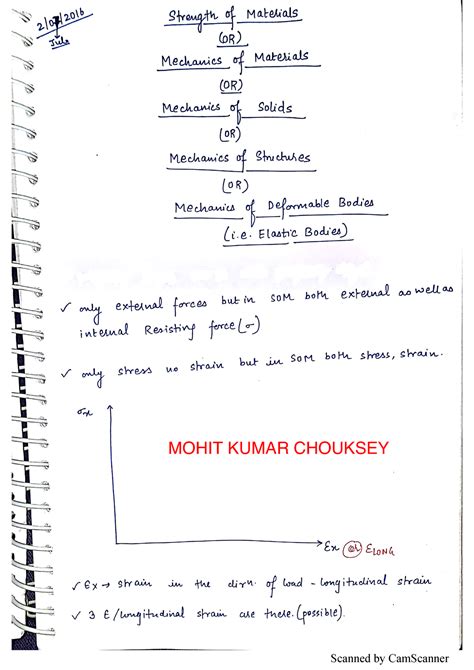 2/07/2016
July
Strength of Materials
(OR)
Mechanics of Materials
(OR)
Mechanics of Solids
(OR)
Mechanics of Structures
(OR)
Mechanics of Deformable Bodies
(i.e. Elastic Bodies)
✓ only external forces but in SOM both external as well as
internal Resisting force (σ)
✓ only stress no strain but in SOM both stress, strain.
σx
MOHIT KUMAR CHOUKSEY
Ɛx (or) ƐLONG
✓ Ɛx → strain in the dirn. of load - longitudinal strain
✓ 3 Ɛ/longitudinal strain are there. (possible).
Scanned by CamScanner